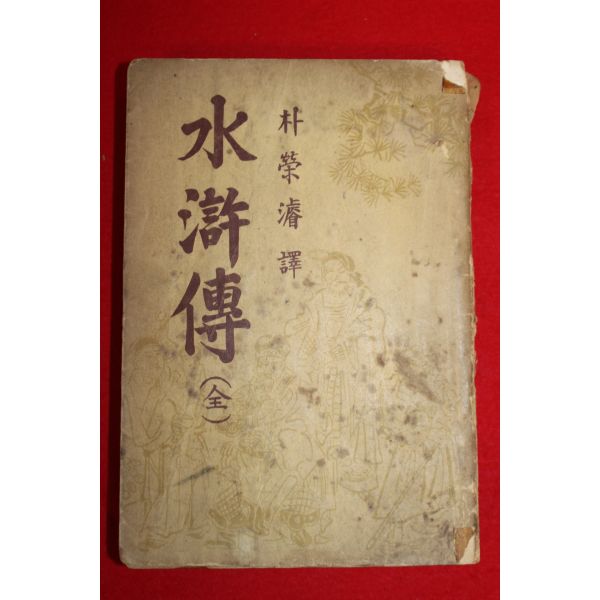 朴榮濬 譯
水滸傳
(全)